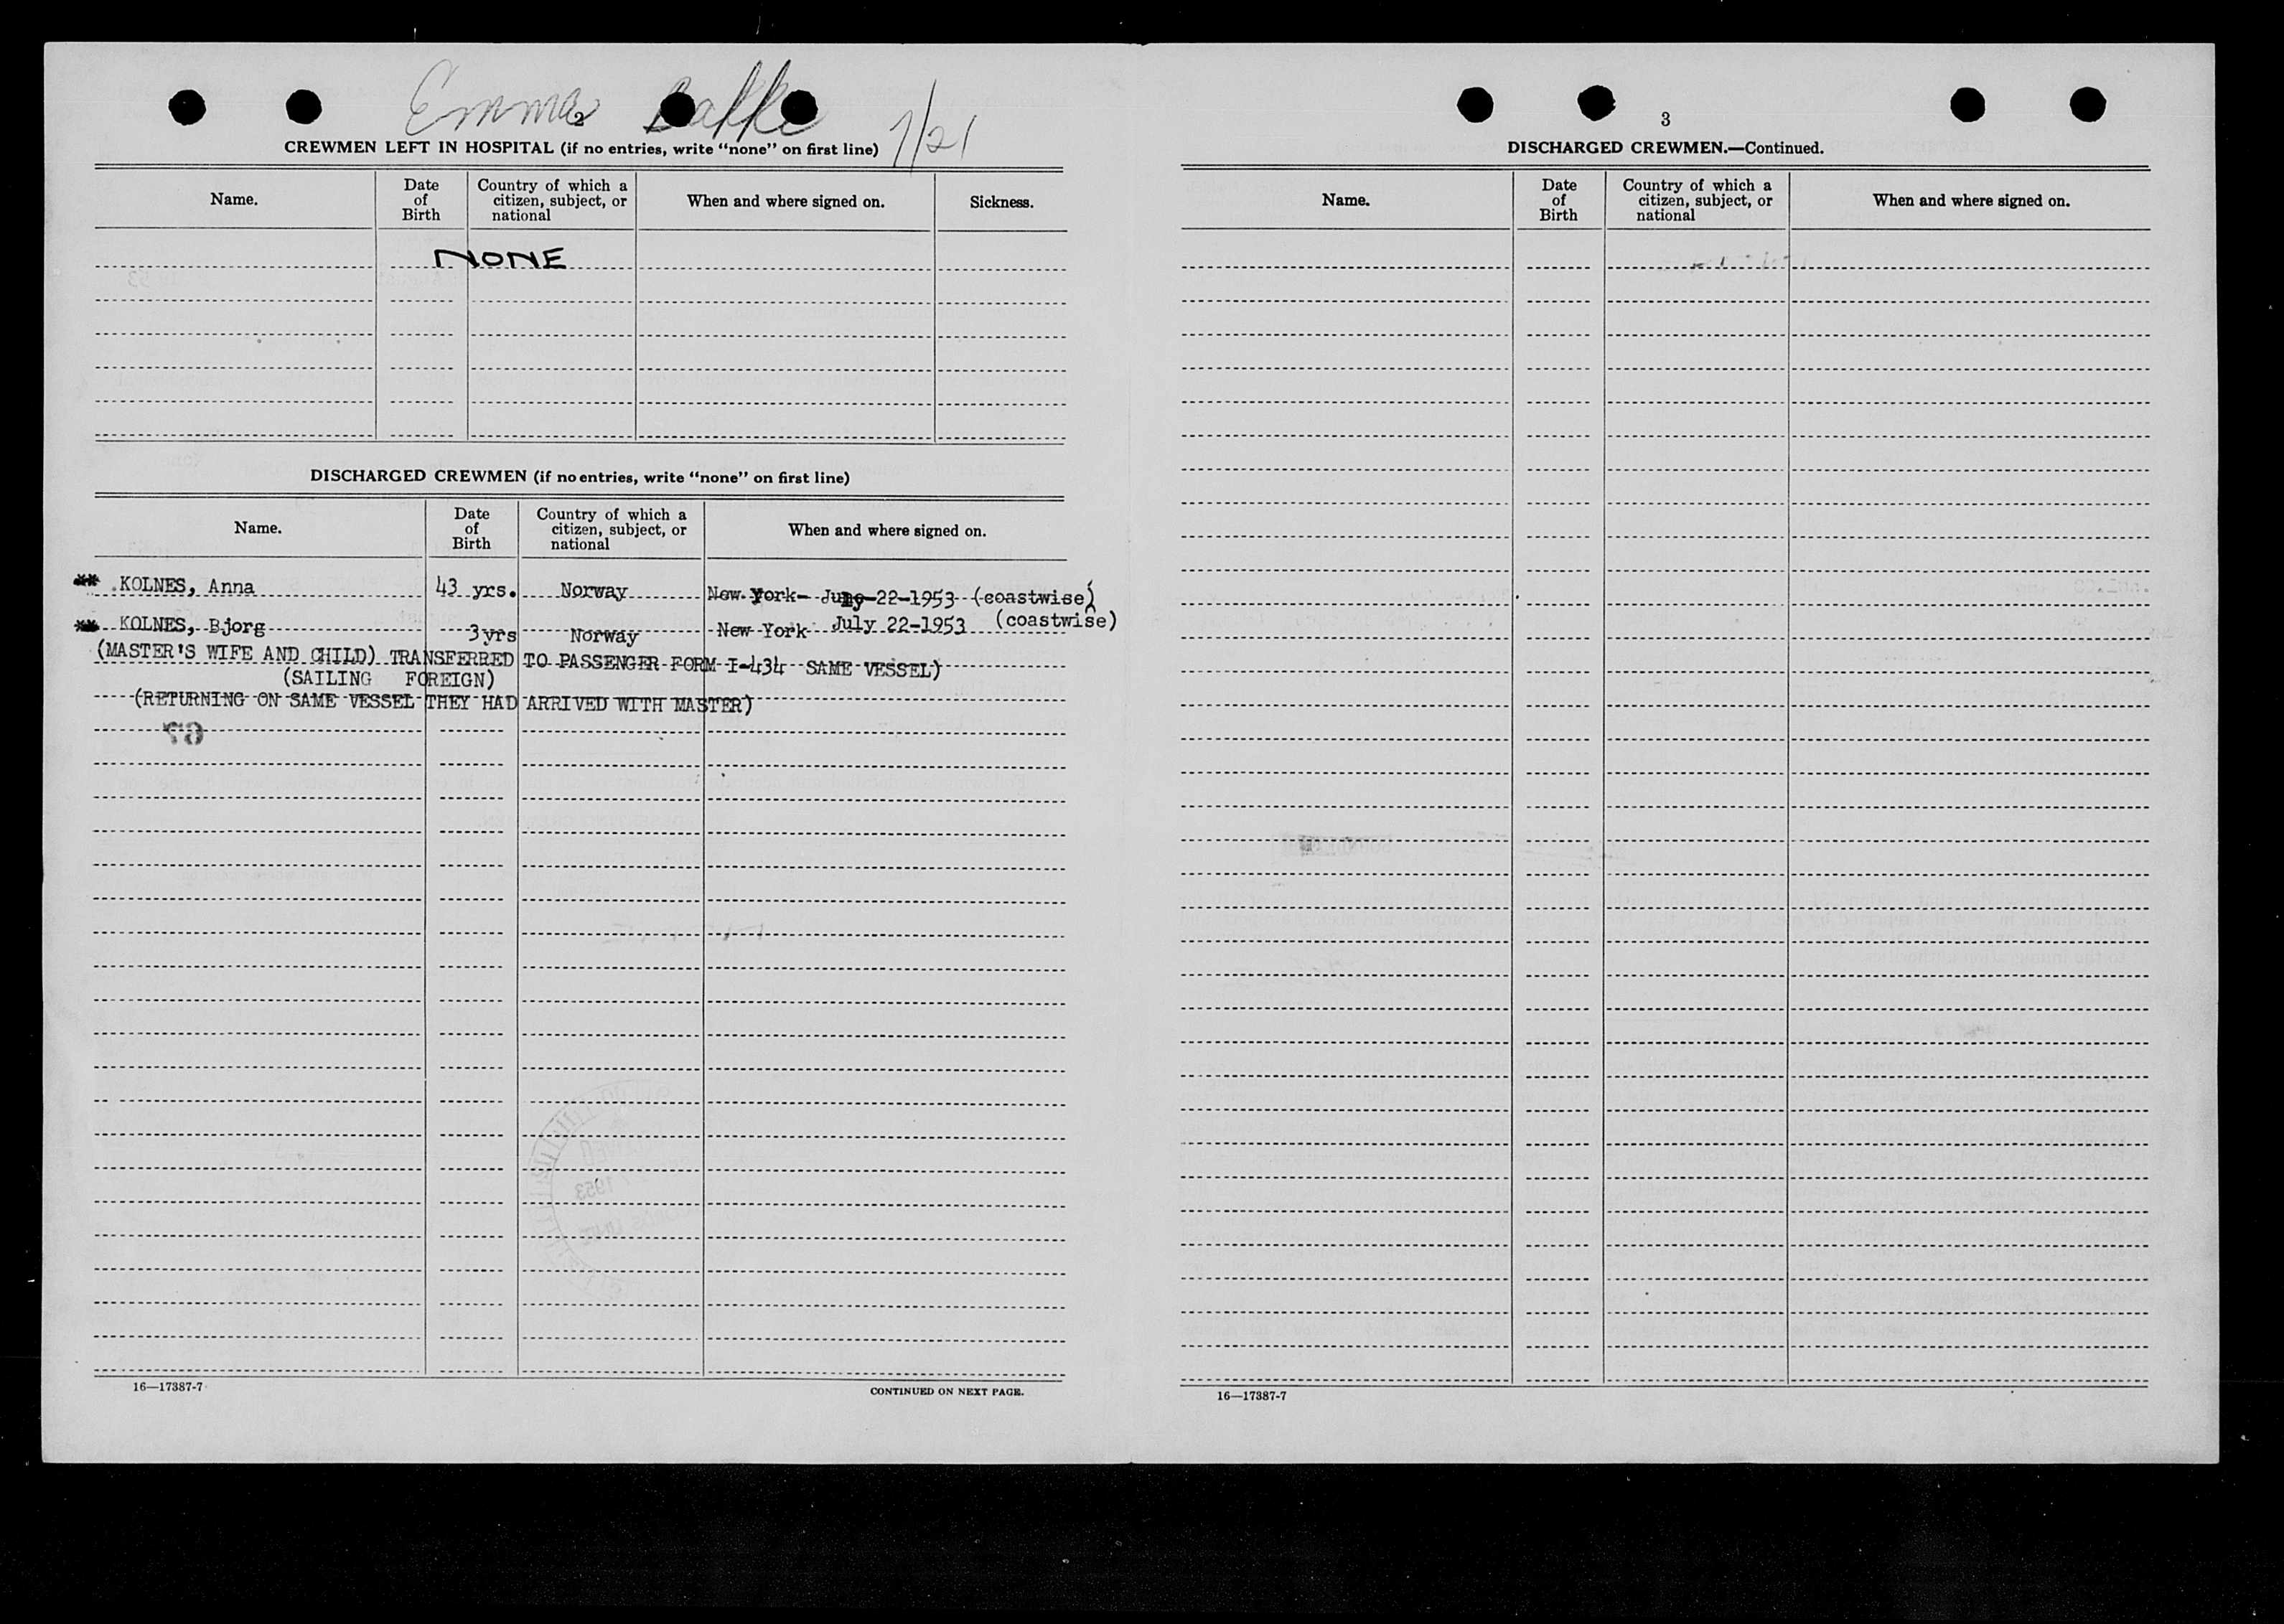 Emma Bakke 7/21
2
CREWMEN LEFT IN HOSPITAL (if no entries, write “none” on first line)
Name.
Date of Birth
Country of which a citizen, subject, or national
When and where signed on.
Sickness.
NONE
DISCHARGED CREWMEN (if no entries, write “none” on first line)
Name.
Date of Birth
Country of which a citizen, subject, or national
When and where signed on.
** KOLNES, Anna 43 yrs. Norway New York- July-22-1953 (coastwise)
** KOLNES, Bjorg 3yrs Norway New York July 22-1953 (coastwise)
(MASTER'S WIFE AND CHILD) TRANSFERRED TO PASSENGER FORM I-434 SAME VESSEL)
(SAILING FOREIGN)
(RETURNING ON SAME VESSEL THEY HAD ARRIVED WITH MASTER)
67
16—17387-7
CONTINUED ON NEXT PAGE.
3
DISCHARGED CREWMEN.—Continued.
Name.
Date of Birth
Country of which a citizen, subject, or national
When and where signed on.
16—17387-7